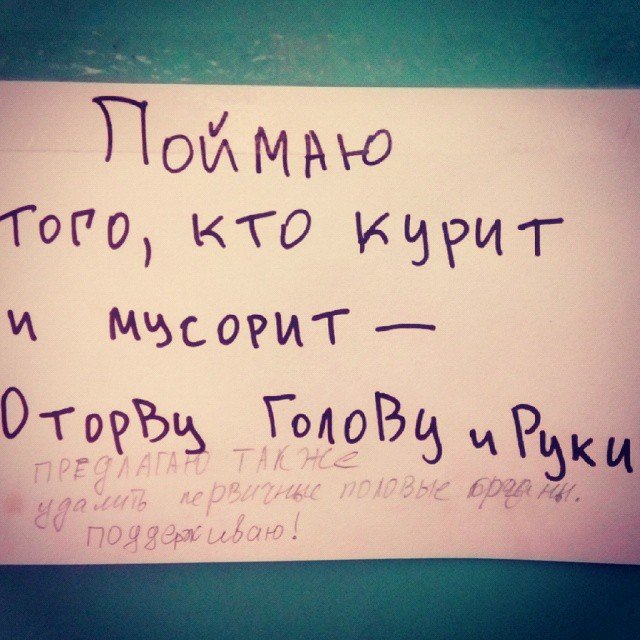 Поймаю
того, кто курит
и мусорит —
Оторву Голову и Руки
ПРЕДЛАГАЮ ТАКЖЕ
удалить первичные половые органы.
поддерживаю!